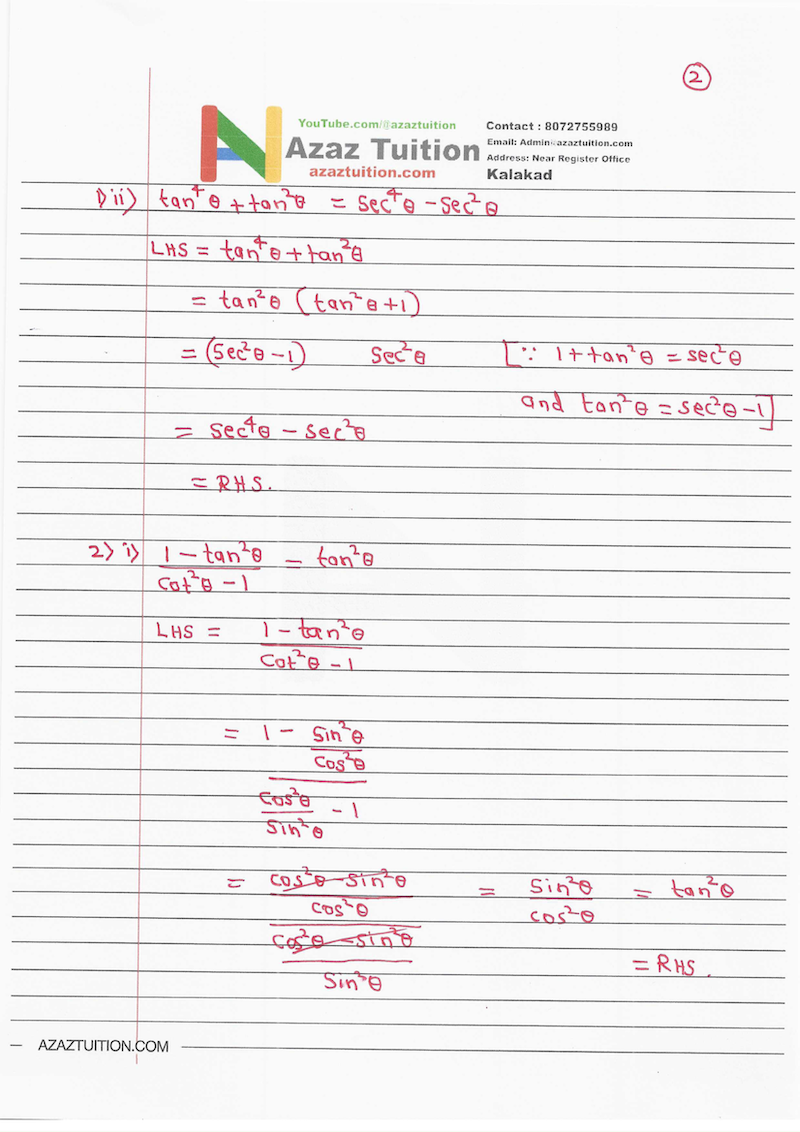 ②
YouTube.com/@azaztuition
Azaz Tuition
azaztuition.com
Contact : 8072755989
Email: Admin@azaztuition.com
Address: Near Register Office
Kalakad
1) ii) tan⁴θ + tan²θ = sec⁴θ - sec²θ
LHS = tan⁴θ + tan²θ
= tan²θ (tan²θ + 1)
= (sec²θ - 1) sec²θ [∵ 1 + tan²θ = sec²θ
and tan²θ = sec²θ - 1]
= sec⁴θ - sec²θ
= RHS.
2) i) 1 - tan²θ / cot²θ - 1 - tan²θ
LHS = 1 - tan²θ / cot²θ - 1
= 1 - sin²θ / cos²θ
cos²θ / sin²θ - 1
= cos²θ - sin²θ / cos²θ = sin²θ / cos²θ = tan²θ
cos²θ - sin²θ / sin²θ
= RHS.
AZAZTUITION.COM